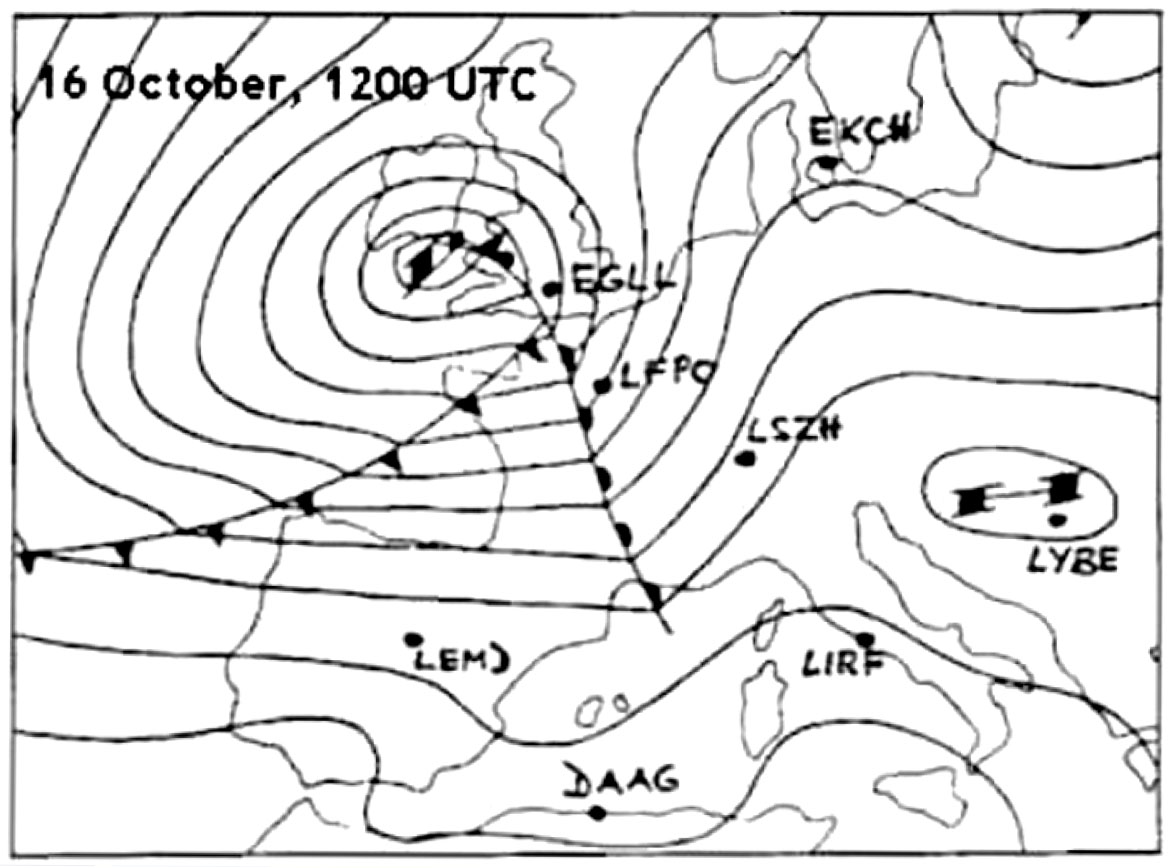 16 October, 1200 UTC
EKCH
EGLL
LFPO
LSZH
LYBE
LEMD
LIRF
DAAG